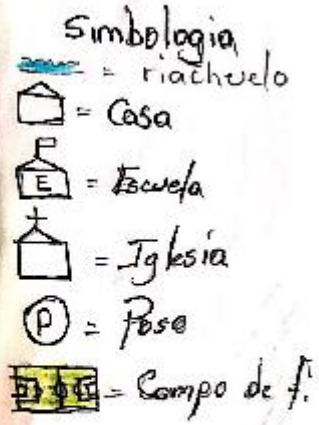 Simbologia
= riachuelo
= Casa
E = Escuela
= Iglesia
P = Poso
= Campo de f.